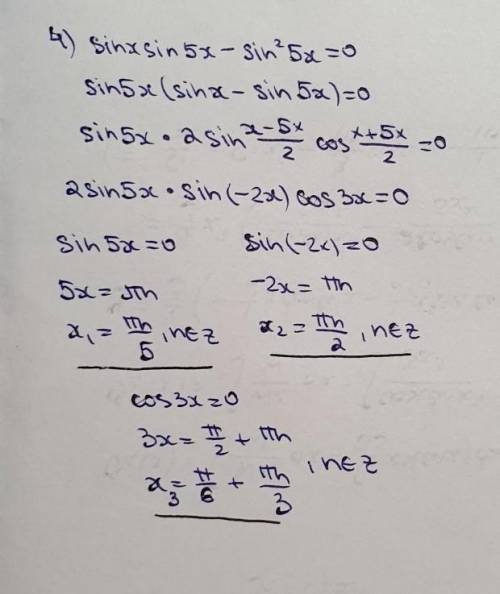 4) sinx sin5x − sin²5x = 0
sin5x (sinx − sin5x) = 0
sin5x • 2 sin (x−5x)/2 cos (x+5x)/2 = 0
2 sin5x • sin(−2x) cos3x = 0
sin5x = 0 sin(−2x) = 0
5x = πn −2x = πn
x₁ = πn/5, n∈Z x₂ = πn/2, n∈Z
cos3x = 0
3x = π/2 + πn
x₃ = π/6 + πn/3, n∈Z